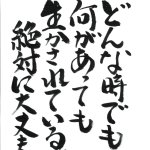 どんな時でも
何があっても
生かされている
絶対に大丈